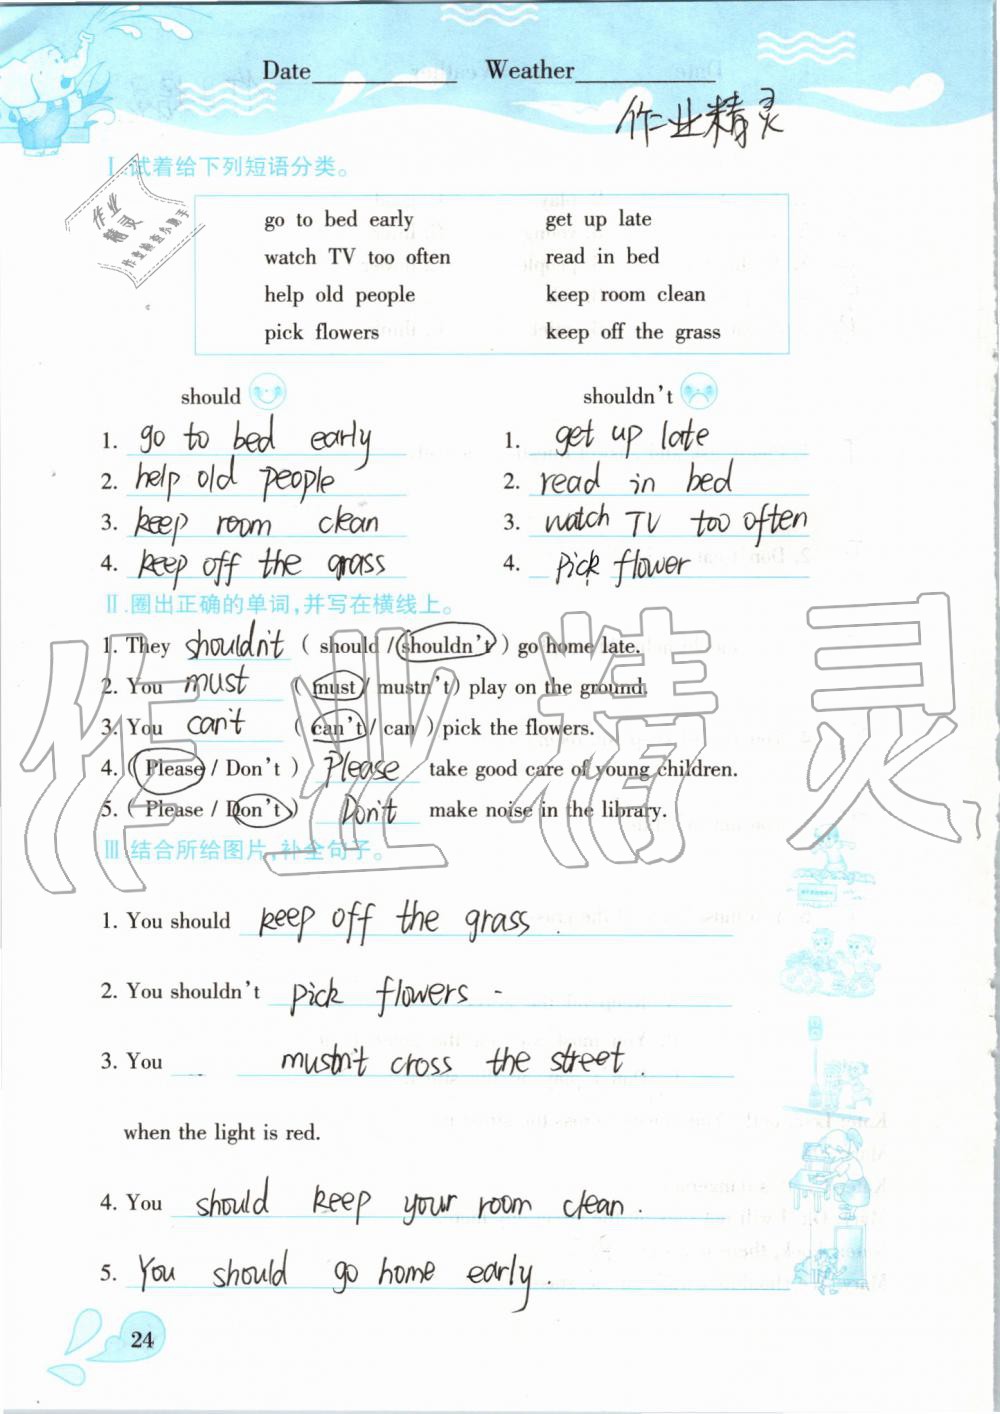 Date____________ Weather____________
作业精灵
Ⅰ.试着给下列短语分类。
作业
精灵
作业检查小助手
go to bed early get up late
watch TV too often read in bed
help old people keep room clean
pick flowers keep off the grass
should shouldn't
1. go to bed early 1. get up late
2. help old people 2. read in bed
3. keep room clean 3. watch TV too often
4. keep off the grass 4. pick flower
Ⅱ.圈出正确的单词,并写在横线上。
1. They shouldn't ( should / shouldn't ) go home late.
2. You must ( must / mustn't) play on the ground.
3. You can't ( can't / can ) pick the flowers.
4. ( Please / Don't ) Please take good care of young children.
5. ( Please / Don't ) Don't make noise in the library.
作业精灵
Ⅲ.结合所给图片,补全句子。
1. You should keep off the grass .
2. You shouldn't pick flowers -
3. You mustn't cross the street .
when the light is red.
4. You should keep your room clean .
5. You should go home early .
24